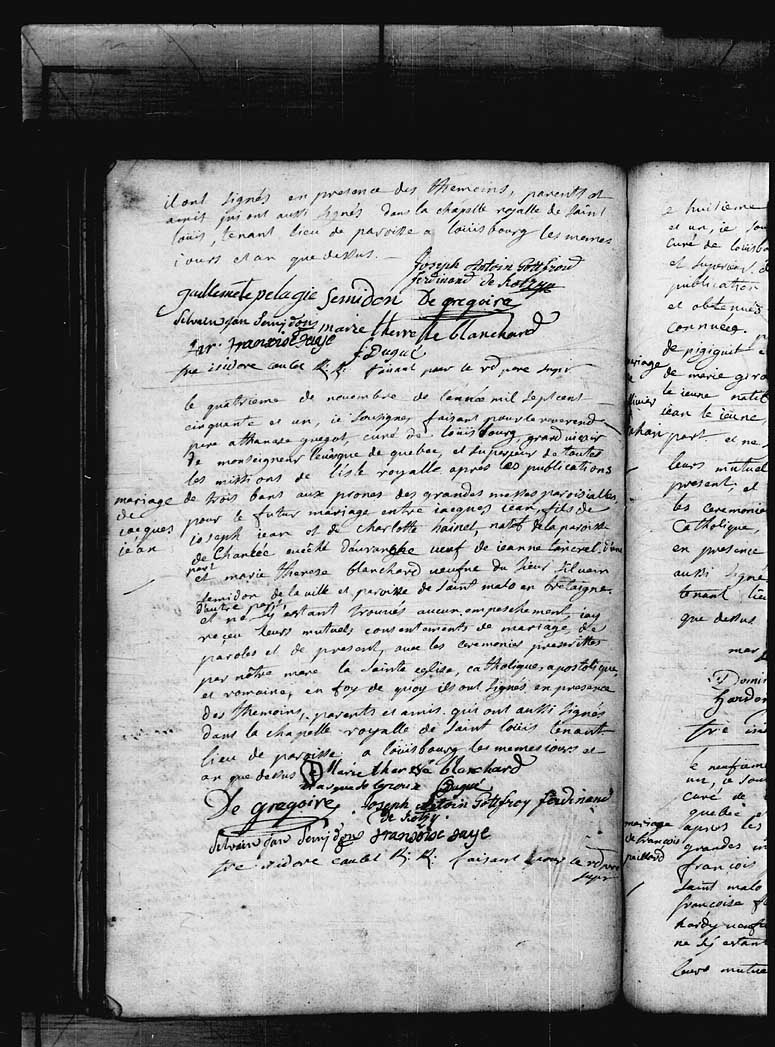 il ont signés en presence des themoins, parents et
amis qui ont aussi signés dans la chapelle royalle de saint
louis, tenant lieu de paroisse a louisbourg les memes
jours et an que dessus.
Joseph Antoin Gottfroy
ferdinand de
guillemete pelagie Semidon De gregoire
Silvain jan Semidon marie therre blanchard
françoise daye
Duguê
fre isidore caulet R. R. faisant pour le rd pere supr
le quatrieme de novembre de lannee mil sept cent
cinquante et un, ie soussigner faisant pour le reverend
pere athanase guegot, curé de louisbourg, grand vicair
de monseigneur leveque de quebec, et superieur de toutes
les missions de l'isle royalle apres les publications
mariage de jacques jean
de trois bans aux prones des grandes messes paroisialles,
pour le futur mariage entre jacques jean, fils de
joseph jean et de charlotte hainel, natif de la paroisse
de Chanteé eveché d'auranche veuf de jeanne lancrel, d'une
part
et marie therese blanchard veufve du sieur silvain
semidon de la ville et paroisse de saint malo en bretaigne
d'autre part,
et ne sy estant trouvés aucun empeschement, iay
reçeu leurs mutuels consentements de mariage, de
paroles et de present, avec les ceremonies prescrittes
par nôtre mere la sainte eglise, catholique, apostolique,
et romaine, en foy de quoy ils ont signés en presence
des themoins, parents et amis qui ont aussi signés
dans la chapelle royalle de saint louis tenant
lieu de paroisse a louisbourg les memes iours et
an que dessus Marie therese blanchard
Duguê
De gregoire Joseph Antoin Gottfroy ferdinand
de
Silvain jan Semidon françoise daye
fre isidore caulet R. R. faisant pour le rd pere
supr
e huitieme
et un, je sou
curé de louisbo
et superieur d
publication
et obtenues
connues.
de pigiguit e
mariage
de marie giro
le jeune natif
jean le jeune,
part et ne
leurs mutuel
present, et
les ceremonie
Catholique,
en presence
aussi signé
tenant lieu
que dessus
mar
Domin
hardon
fre isi
le neufieme
un, ie sou
curé de
quebec e
mariage de françois paillard
apres les
grandes m
françois
saint malo
françoise
hardy veufve
ne sy estant
leurs mutue